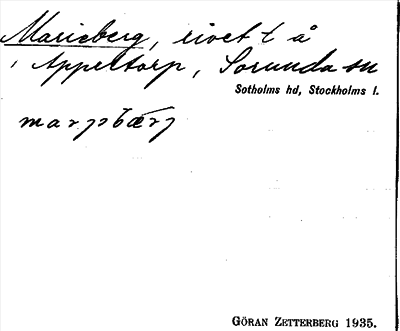 Marieberg, rivet t å
i Appeltorp, Sorunda sn
Sotholms hd, Stockholms l.
GÖRAN ZETTERBERG 1935.